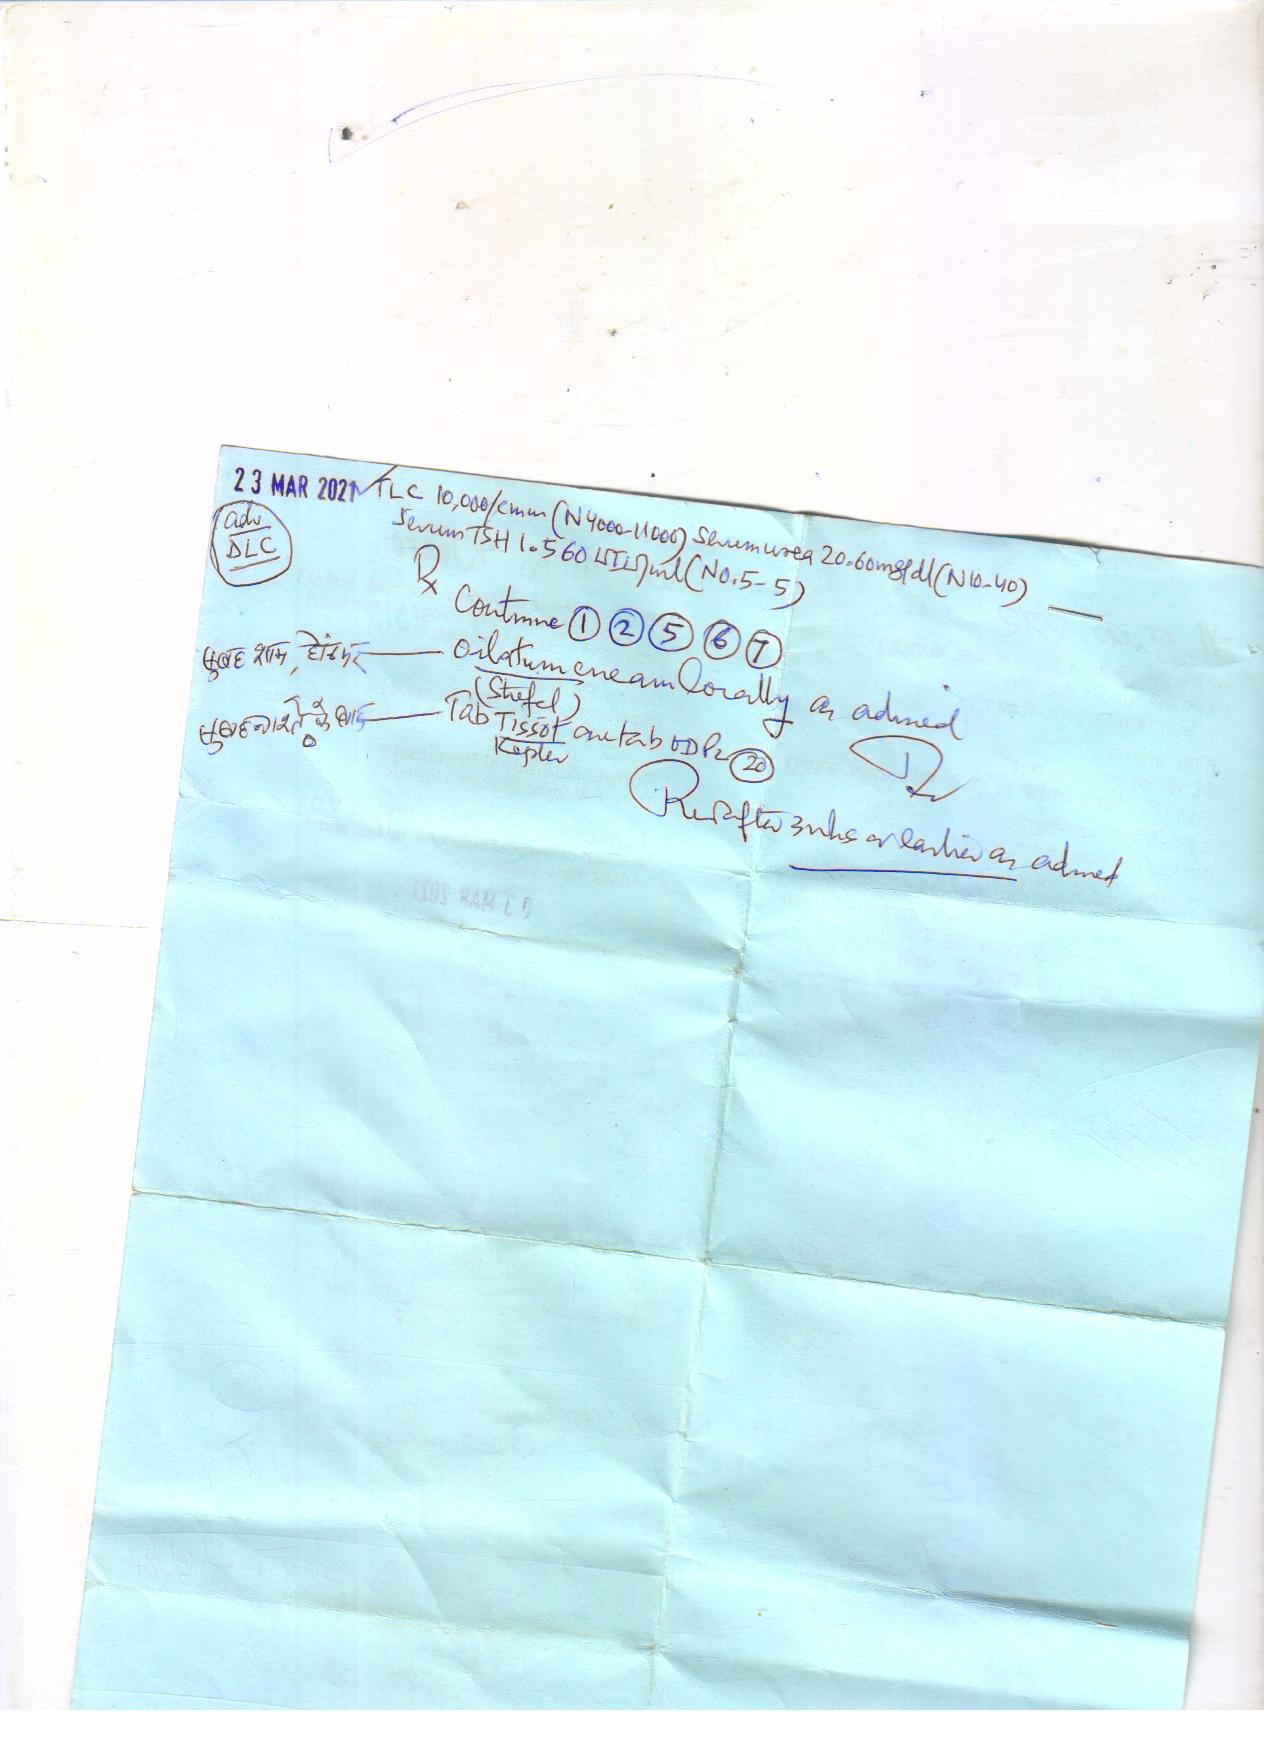 23 MAR 2021 TLC 10,000/cmm (N 4000-11000) Serum urea 20.60mg/dl (N 10-40)
adv
DLC
Serum TSH 1.560 uIU/ml (N0.5-5)
Rx
Continue 1 2 5 6 7
सुबह शाम, होंठ पर — Oilatum cream locally as advised
(Stiefel)
सुबह नाश्ते के बाद — Tab Tissot one tab OD Pc 20
Kepler
Rev after 3 wks or earlier as advised
03 MAR 2021